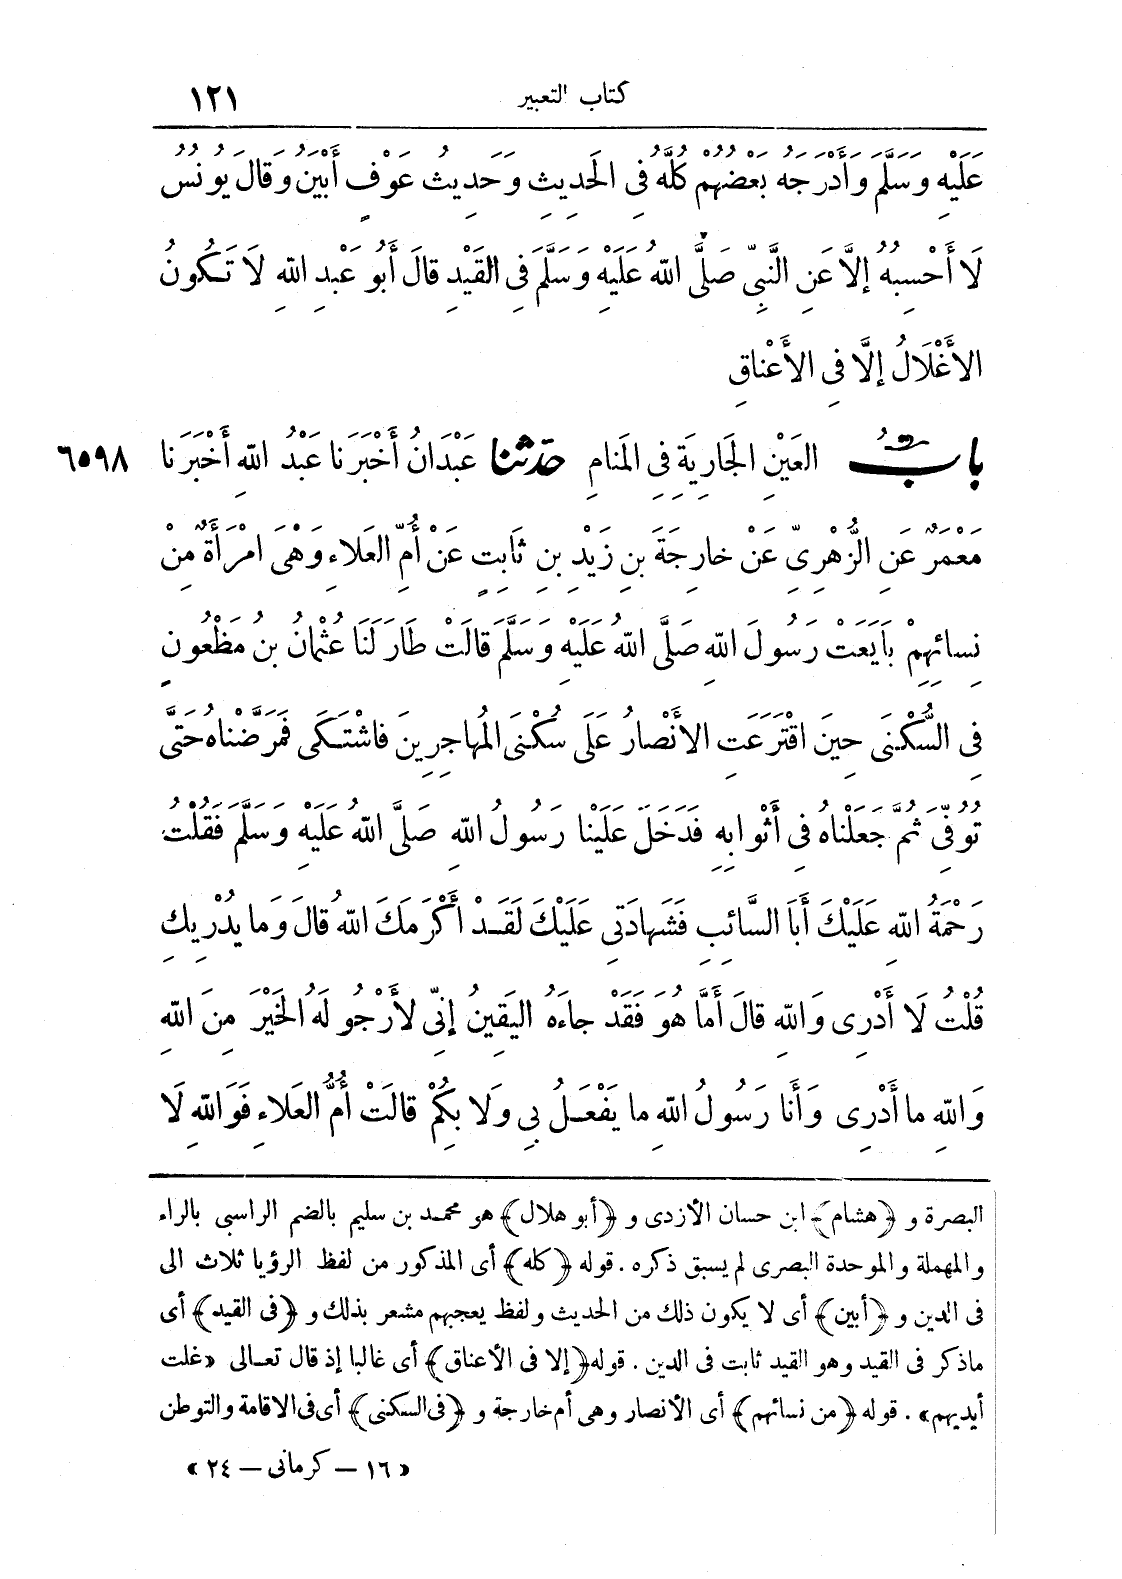 كتاب التعبير ١٢١
عَلَيْهِ وَسَلَّمَ وَأَدْرَجَهُ بَعْضُهُمْ كُلَّهُ فِى الْحَدِيثِ وَحَدِيثُ عَوْفٍ أَبْيَنُ وَقَالَ يُونُسُ
لَا أَحْسِبُهُ إِلَّا عَنِ النَّبِيِّ صَلَّى اللهُ عَلَيْهِ وَسَلَّمَ فِى القَيْدِ قَالَ أَبُو عَبْدِ اللهِ لَا تَكُونُ
الأَغْلَالُ إِلَّا فِى الأَعْنَاقِ
بابُ العَيْنِ الجَارِيَةِ فِى المَنَامِ حدثنا عَبْدَانُ أَخْبَرَنَا عَبْدُ اللهِ أَخْبَرَنَا ٦٥٩٨
مَعْمَرٌ عَنِ الزُّهْرِىِّ عَنْ خَارِجَةَ بنِ زَيْدِ بنِ ثَابِتٍ عَنْ أُمِّ العَلَاءِ وَهْىَ امْرَأَةٌ مِنْ
نِسَائِهِمْ بَايَعَتْ رَسُولَ اللهِ صَلَّى اللهُ عَلَيْهِ وَسَلَّمَ قَالَتْ طَارَ لَنَا عُثْمَانُ بنُ مَظْعُونٍ
فِى السُّكْنَى حِينَ اقْتَرَعَتِ الأَنْصَارُ عَلَى سُكْنَى المُهَاجِرِينَ فَاشْتَكَى فَمَرَّضْنَاهُ حَتَّى
تُوُفِّىَ ثُمَّ جَعَلْنَاهُ فِى أَثْوَابِهِ فَدَخَلَ عَلَيْنَا رَسُولُ اللهِ صَلَّى اللهُ عَلَيْهِ وَسَلَّمَ فَقُلْتُ
رَحْمَةُ اللهِ عَلَيْكَ أَبَا السَّائِبِ فَشَهَادَتِى عَلَيْكَ لَقَدْ أَكْرَمَكَ اللهُ قَالَ وَمَا يُدْرِيكِ
قُلْتُ لَا أَدْرِى وَاللهِ قَالَ أَمَّا هُوَ فَقَدْ جَاءَهُ اليَقِينُ إِنِّى لَأَرْجُو لَهُ الخَيْرَ مِنَ اللهِ
وَاللهِ مَا أَدْرِى وَأَنَا رَسُولُ اللهِ مَا يَفْعَلُ بِى وَلَا بِكُمْ قَالَتْ أُمُّ العَلَاءِ فَوَاللهِ لَا
البصرة و ﴿هشام﴾ ابن حسان الأزدى و ﴿أبو هلال﴾ هو محمد بن سليم بالضم الراسبى بالراء
والمهملة والموحدة البصرى لم يسبق ذكره . قوله ﴿كله﴾ أى المذكور من لفظ الرؤيا ثلاث الى
فى الدين و ﴿أبين﴾ أى لا يكون ذلك من الحديث ولفظ يعجبهم مشعر بذلك و ﴿فى القيد﴾ أى
ماذكر فى القيد وهو القيد ثابت فى الدين . قوله ﴿إلا فى الأعناق﴾ أى غالبا إذ قال تعالى «غلت
أيديهم» . قوله ﴿من نسائهم﴾ أى الأنصار وهى أم خارجة و ﴿فى السكنى﴾ أى فى الاقامة والتوطن
« ١٦ – كرمانى – ٢٤ »